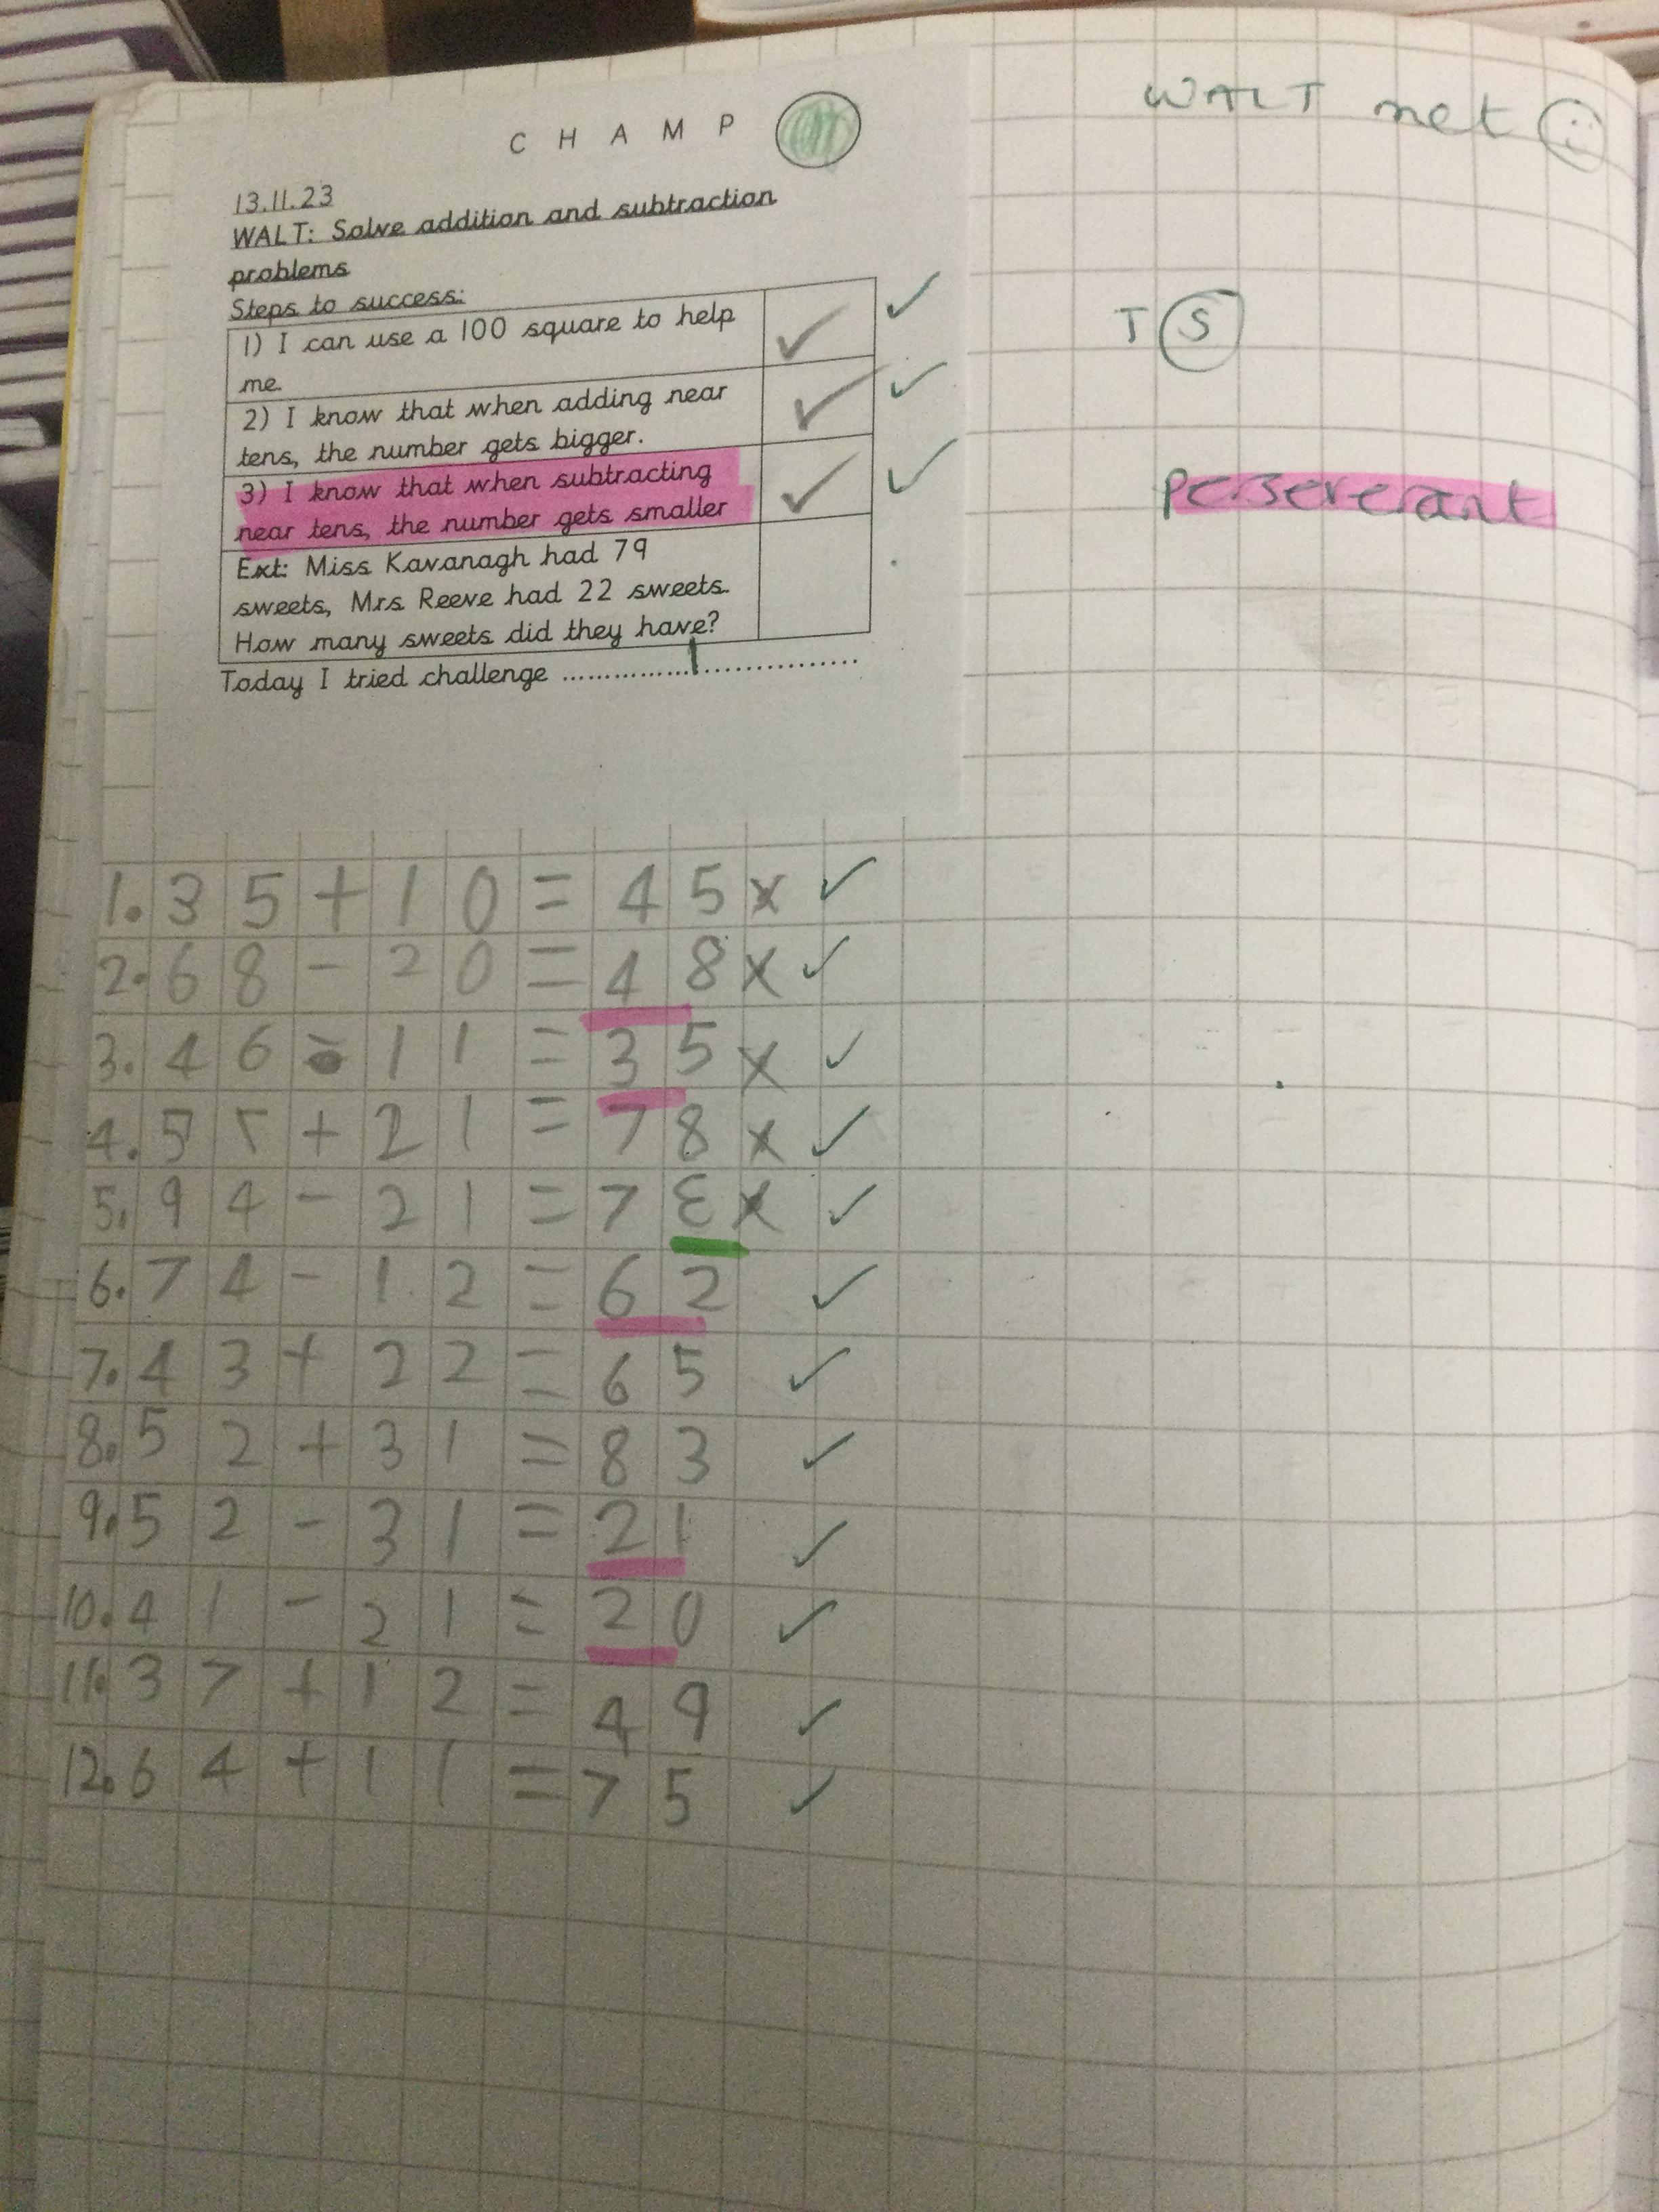 C H A M P
WALT met
13.11.23
WALT: Solve addition and subtraction
problems
Steps to success:
1) I can use a 100 square to help
me.
T S
2) I know that when adding near
tens, the number gets bigger.
3) I know that when subtracting
near tens, the number gets smaller
perseverant
Ext: Miss Kavanagh had 79
sweets, Mrs Reeve had 22 sweets.
How many sweets did they have?
Today I tried challenge ................1................
1. 35 + 10 = 45 x ✓
2. 68 - 20 = 48 x ✓
3. 46 - 11 = 35 x ✓
4. 57 + 21 = 78 x ✓
5. 94 - 21 = 7Ɛ x ✓
6. 74 - 12 = 62 ✓
7. 43 + 22 = 65 ✓
8. 52 + 31 = 83 ✓
9. 52 - 31 = 21 ✓
10. 41 - 21 = 20 ✓
11. 37 + 12 = 49 ✓
12. 64 + 11 = 75 ✓